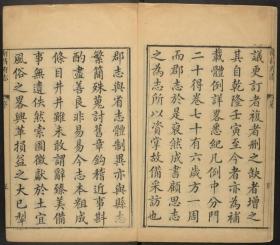 議更訂者複者刪之缺者增之
其自乾隆壬寅至今者亦為補
載體例詳畧悉紀凡例中分門
二十得卷七十有六歲方一周
而郡志於是裒然成書顧思志
之為志所以資掌故備采訪也
郡志與省志體制異亦與縣志
繁簡殊蒐討舊章鈎稽近事斟
酌盡善良非易易今志本類成
條目井井雖未敢謂辭臻美備
事無遺佚然索圖徵獻於土宜
風俗之畧興革損益之大已犁